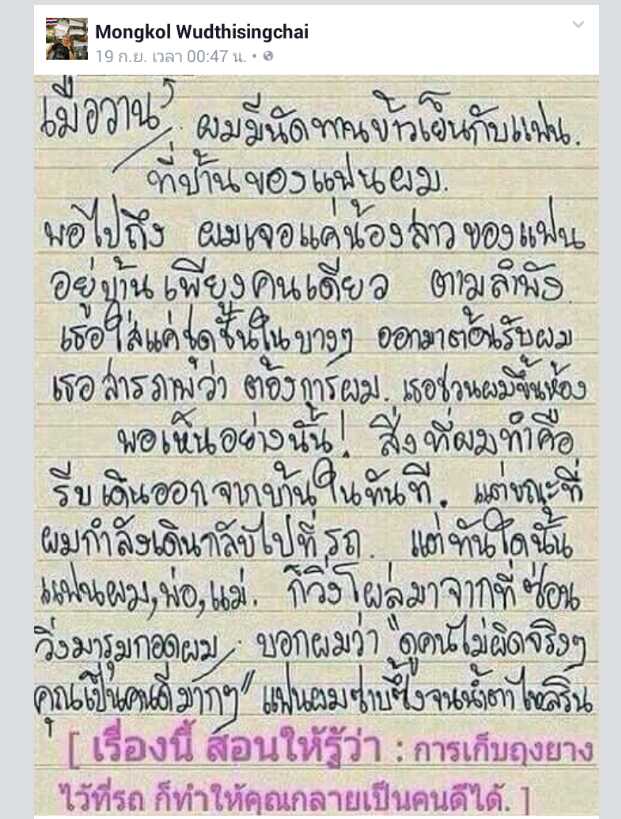 Mongkol Wudthisingchai
19 ก.ย. เวลา 00:47 น. •
เมื่อวานๆ ผมมีนัดทานข้าวเย็นกับแฟน.
ที่บ้านของแฟนผม.
พอไปถึง ผมเจอแค่น้องสาวของแฟน
อยู่บ้านเพียงคนเดียว ตามลำพัง
เธอใส่แค่ชุดชั้นในบางๆ ออกมาต้อนรับผม
เธอสารภาพว่า ต้องการผม. เธอชวนผมขึ้นห้อง
พอเห็นอย่างนั้น! สิ่งที่ผมทำคือ
รีบเดินออกจากบ้านในทันที. แต่ขณะที่
ผมกำลังเดินกลับไปที่รถ. แต่ทันใดนั้น
แฟนผม,พ่อ,แม่. ก็วิ่งโผล่มาจากที่ซ่อน
วิ่งมารุมกอดผม บอกผมว่า "ดูคนไม่ผิดจริงๆ
คุณเป็นคนดีมากๆ" แฟนผมซาบซึ้งจนน้ำตาไหลริน
[ เรื่องนี้ สอนให้รู้ว่า : การเก็บถุงยาง
ไว้ที่รถ ก็ทำให้คุณกลายเป็นคนดีได้. ]